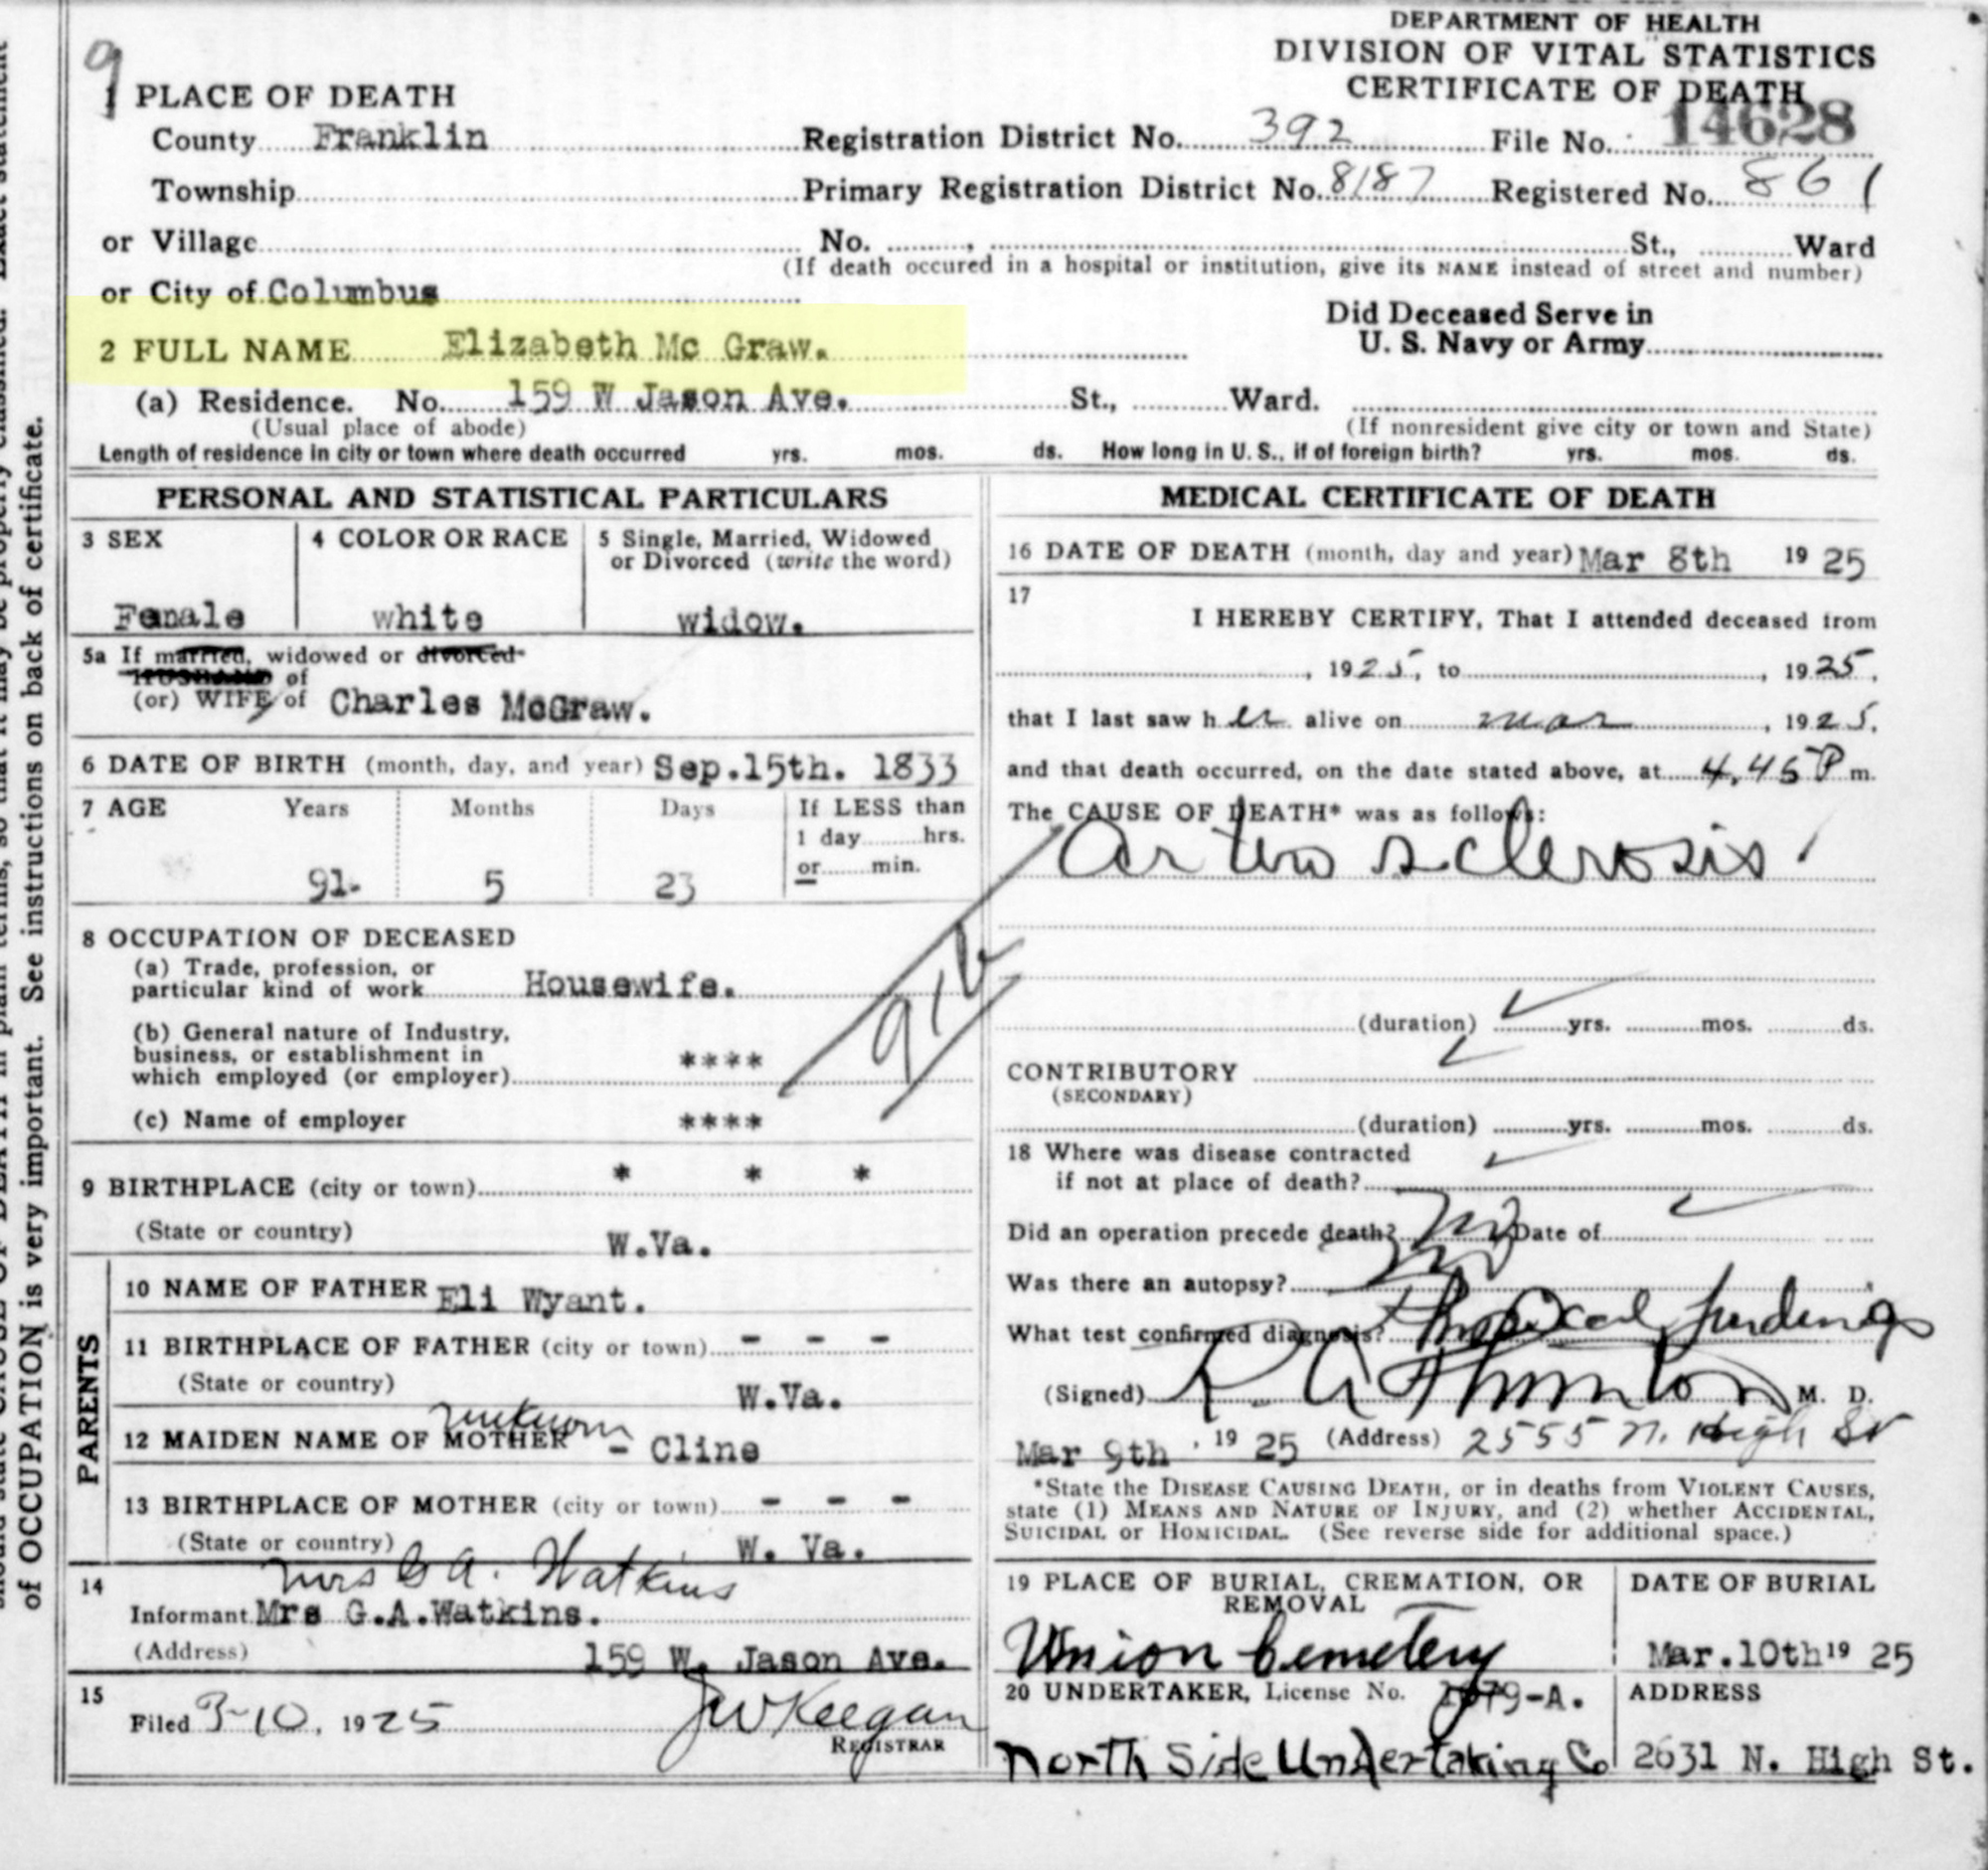 DEPARTMENT OF HEALTH
DIVISION OF VITAL STATISTICS
CERTIFICATE OF DEATH
9
1 PLACE OF DEATH
County Franklin Registration District No. 392 File No. 14628
Township Primary Registration District No. 8187 Registered No. 861
or Village No. , St., Ward
(If death occured in a hospital or institution, give its NAME instead of street and number)
or City of Columbus
Did Deceased Serve in
U. S. Navy or Army
2 FULL NAME Elizabeth Mc Graw.
(a) Residence. No. 159 W Jason Ave. St., Ward.
(Usual place of abode) (If nonresident give city or town and State)
Length of residence in city or town where death occurred yrs. mos. ds. How long in U. S., if of foreign birth? yrs. mos. ds.
PERSONAL AND STATISTICAL PARTICULARS
3 SEX 4 COLOR OR RACE 5 Single, Married, Widowed
or Divorced (write the word)
Female white widow.
5a If married, widowed or divorced
HUSBAND of
(or) WIFE of Charles McGraw.
6 DATE OF BIRTH (month, day, and year) Sep.15th. 1833
7 AGE Years Months Days If LESS than
1 day hrs.
or min.
91. 5 23
8 OCCUPATION OF DECEASED
(a) Trade, profession, or
particular kind of work Housewife.
(b) General nature of Industry,
business, or establishment in
which employed (or employer) ****
(c) Name of employer ****
9 BIRTHPLACE (city or town) * * *
(State or country) W.Va.
PARENTS
10 NAME OF FATHER Eli Wyant.
11 BIRTHPLACE OF FATHER (city or town) - - -
(State or country) W.Va.
unknown
12 MAIDEN NAME OF MOTHER - Cline
13 BIRTHPLACE OF MOTHER (city or town) - - -
(State or country) W. Va.
Mrs G A. Watkins
14
Informant Mrs G.A.Watkins.
(Address) 159 W. Jason Ave.
15
Filed 3-10, 1925 JW Keegan
REGISTRAR
MEDICAL CERTIFICATE OF DEATH
16 DATE OF DEATH (month, day and year) Mar 8th 19 25
17
I HEREBY CERTIFY, That I attended deceased from
, 1925, to , 1925,
that I last saw her alive on mar , 1925,
and that death occurred, on the date stated above, at 4.45 P m.
The CAUSE OF DEATH* was as follows:
Arterio sclerosis
91b
(duration) yrs. mos. ds.
CONTRIBUTORY
(SECONDARY)
(duration) yrs. mos. ds.
18 Where was disease contracted
if not at place of death?
Did an operation precede death? no Date of
Was there an autopsy? no
What test confirmed diagnosis? Physical findings
(Signed) R A Thornton M. D.
Mar 9th , 19 25 (Address) 2555 N. High St
*State the DISEASE CAUSING DEATH, or in deaths from VIOLENT CAUSES,
state (1) MEANS AND NATURE OF INJURY, and (2) whether ACCIDENTAL,
SUICIDAL or HOMICIDAL. (See reverse side for additional space.)
19 PLACE OF BURIAL, CREMATION, OR
REMOVAL
DATE OF BURIAL
Union Cemetery Mar.10th 19 25
20 UNDERTAKER, License No. 79-A. ADDRESS
North Side Undertaking Co 2631 N. High St.
of OCCUPATION is very important. See instructions on back of certificate.